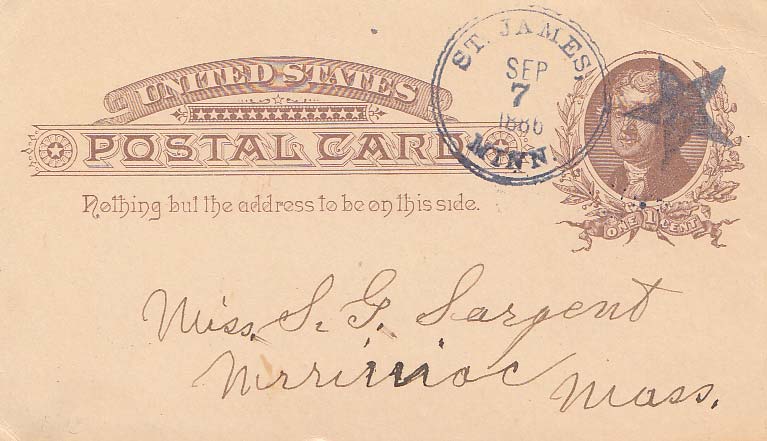 UNITED STATES
POSTAL CARD
Nothing but the address to be on this side.
ST. JAMES,
SEP
7
1886
MINN.
ONE 1 CENT
Miss. S. G. Sargent
Merrimac
Mass.